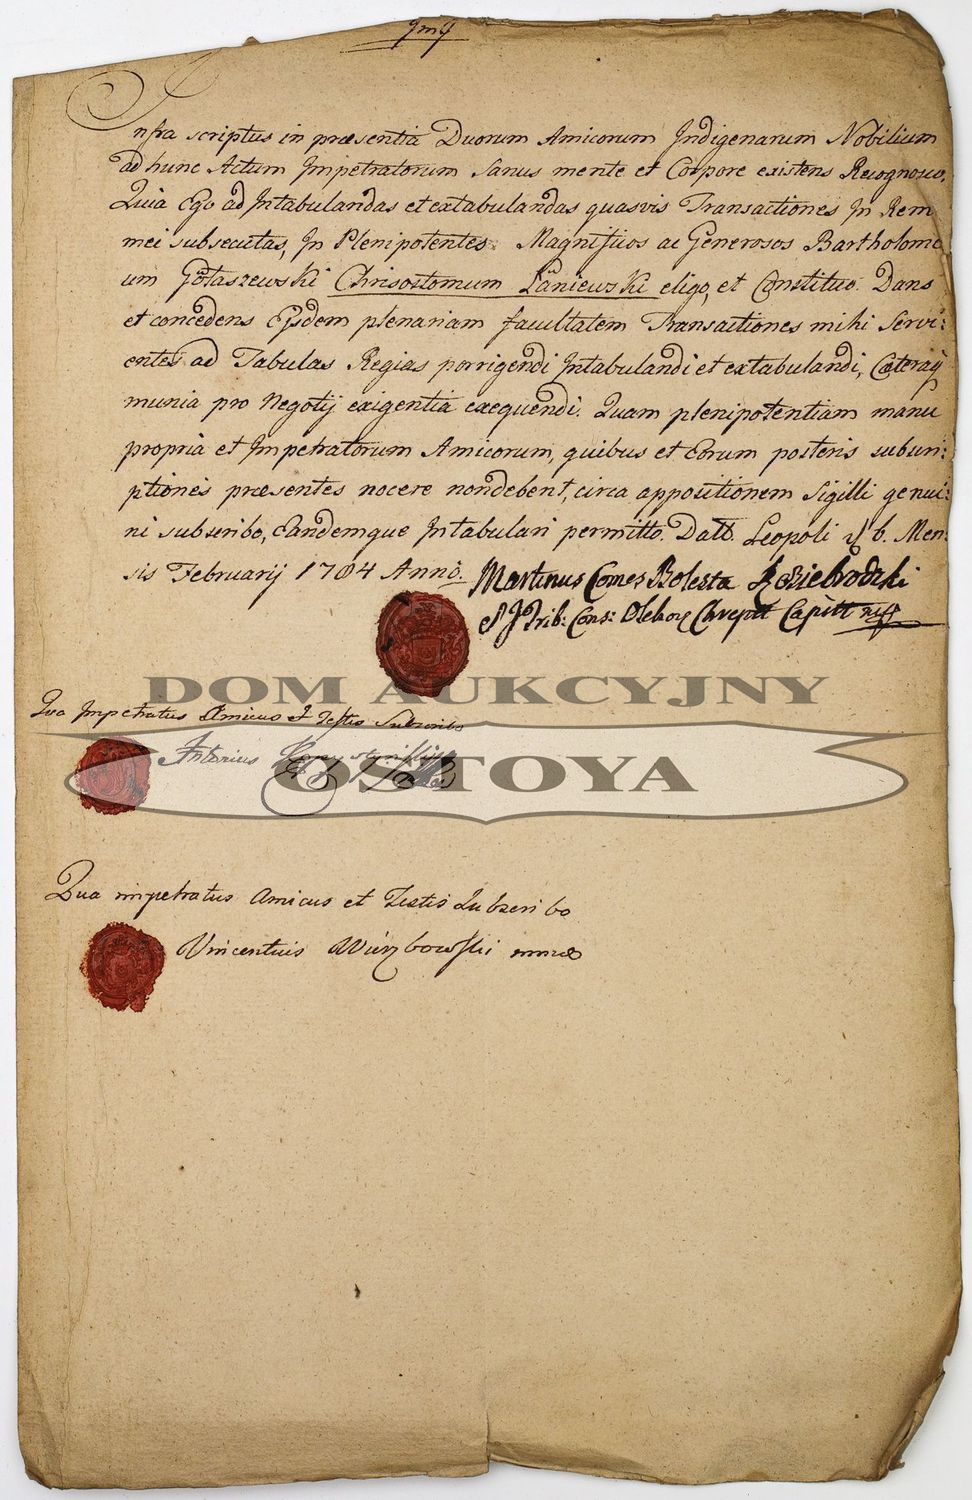 Infra scriptus in præsentia Duorum Amicorum Indigenarum Nobilium
ad hunc Actum Impetratorum Sanus mente et Corpore existens Recognosco,
Quia Ego ad Intabulandas et extabulandas quasvis Transactiones In Rem
mei subsecutas, In Plenipotentes Magnificos ac Generosos Bartholome
um Gołaszewski Chrisostomum Łaniewski eligo, et Constituo. Dans
et concedens Ejsdem plenariam facultatem Transactiones mihi Servi:
entes ad Tabulas Regias porrigendi Intabulandi et extabulandi, Cæteraq
munia pro Negotij exigentia exequendi. Quam plenipotentiam manu
propria et Impetratorum Amicorum, quibus et Eorum posteris subscri:
ptiones præsentes nocere nondebent, circa appositionem Sigilli genui:
ni subscribo, Eandemque Intabulari permitto. Datt. Leopoli 6. Men:
sis Februarij 1784 Anno. Martinus Comes Bolesta Koziebrodzki
Trib: Cons: Chrept Capitt
Qua Impetratus Amicus et Testis Subscribo
Antonius
DOM AUKCYJNY
OSTOYA
Qua impetratus Amicus et Testis Subscribo
Vincentius Wierzbowski